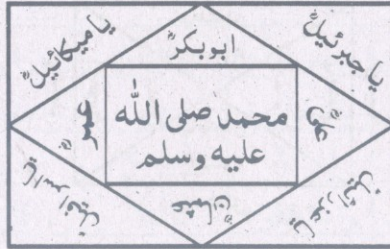 یا جبرئیلؑ
یا میکائیلؑ
ابوبکرؓ
محمد صلی اللہ
علیہ وسلم
علیؓ
عمرؓ
عثمانؓ
یا عزرائیلؑ
یا اسرافیلؑ